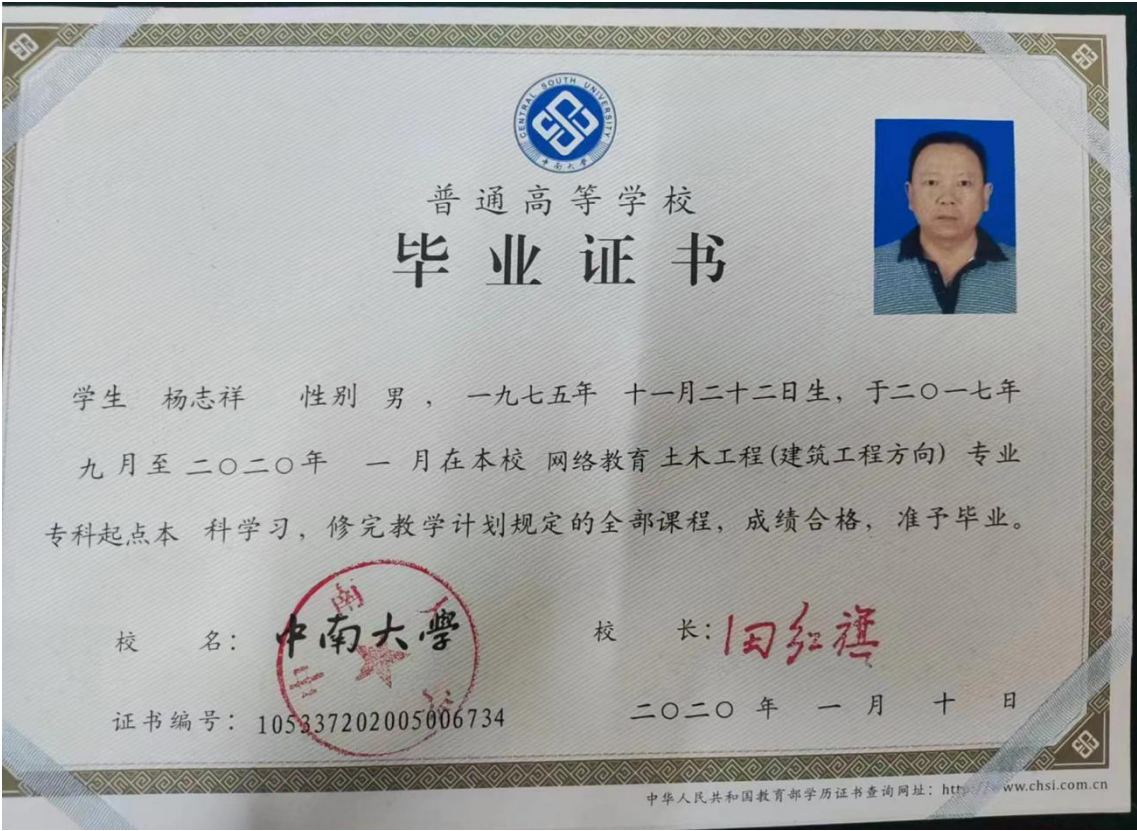 CENTRAL SOUTH UNIVERSITY
中南大学
普通高等学校
毕业证书
学生 杨志祥 性别 男 ， 一九七五年 十一月二十二日生，于二〇一七年
九月至二〇二〇年 一 月在本校 网络教育 土木工程(建筑工程方向) 专业
专科起点本 科学习，修完教学计划规定的全部课程，成绩合格，准予毕业。
校 名： 中南大學 校 长：田红旗
中南大
证书编号：105337202005006734 二〇二〇 年 一 月 十 日
中华人民共和国教育部学历证书查询网址：http://www.chsi.com.cn